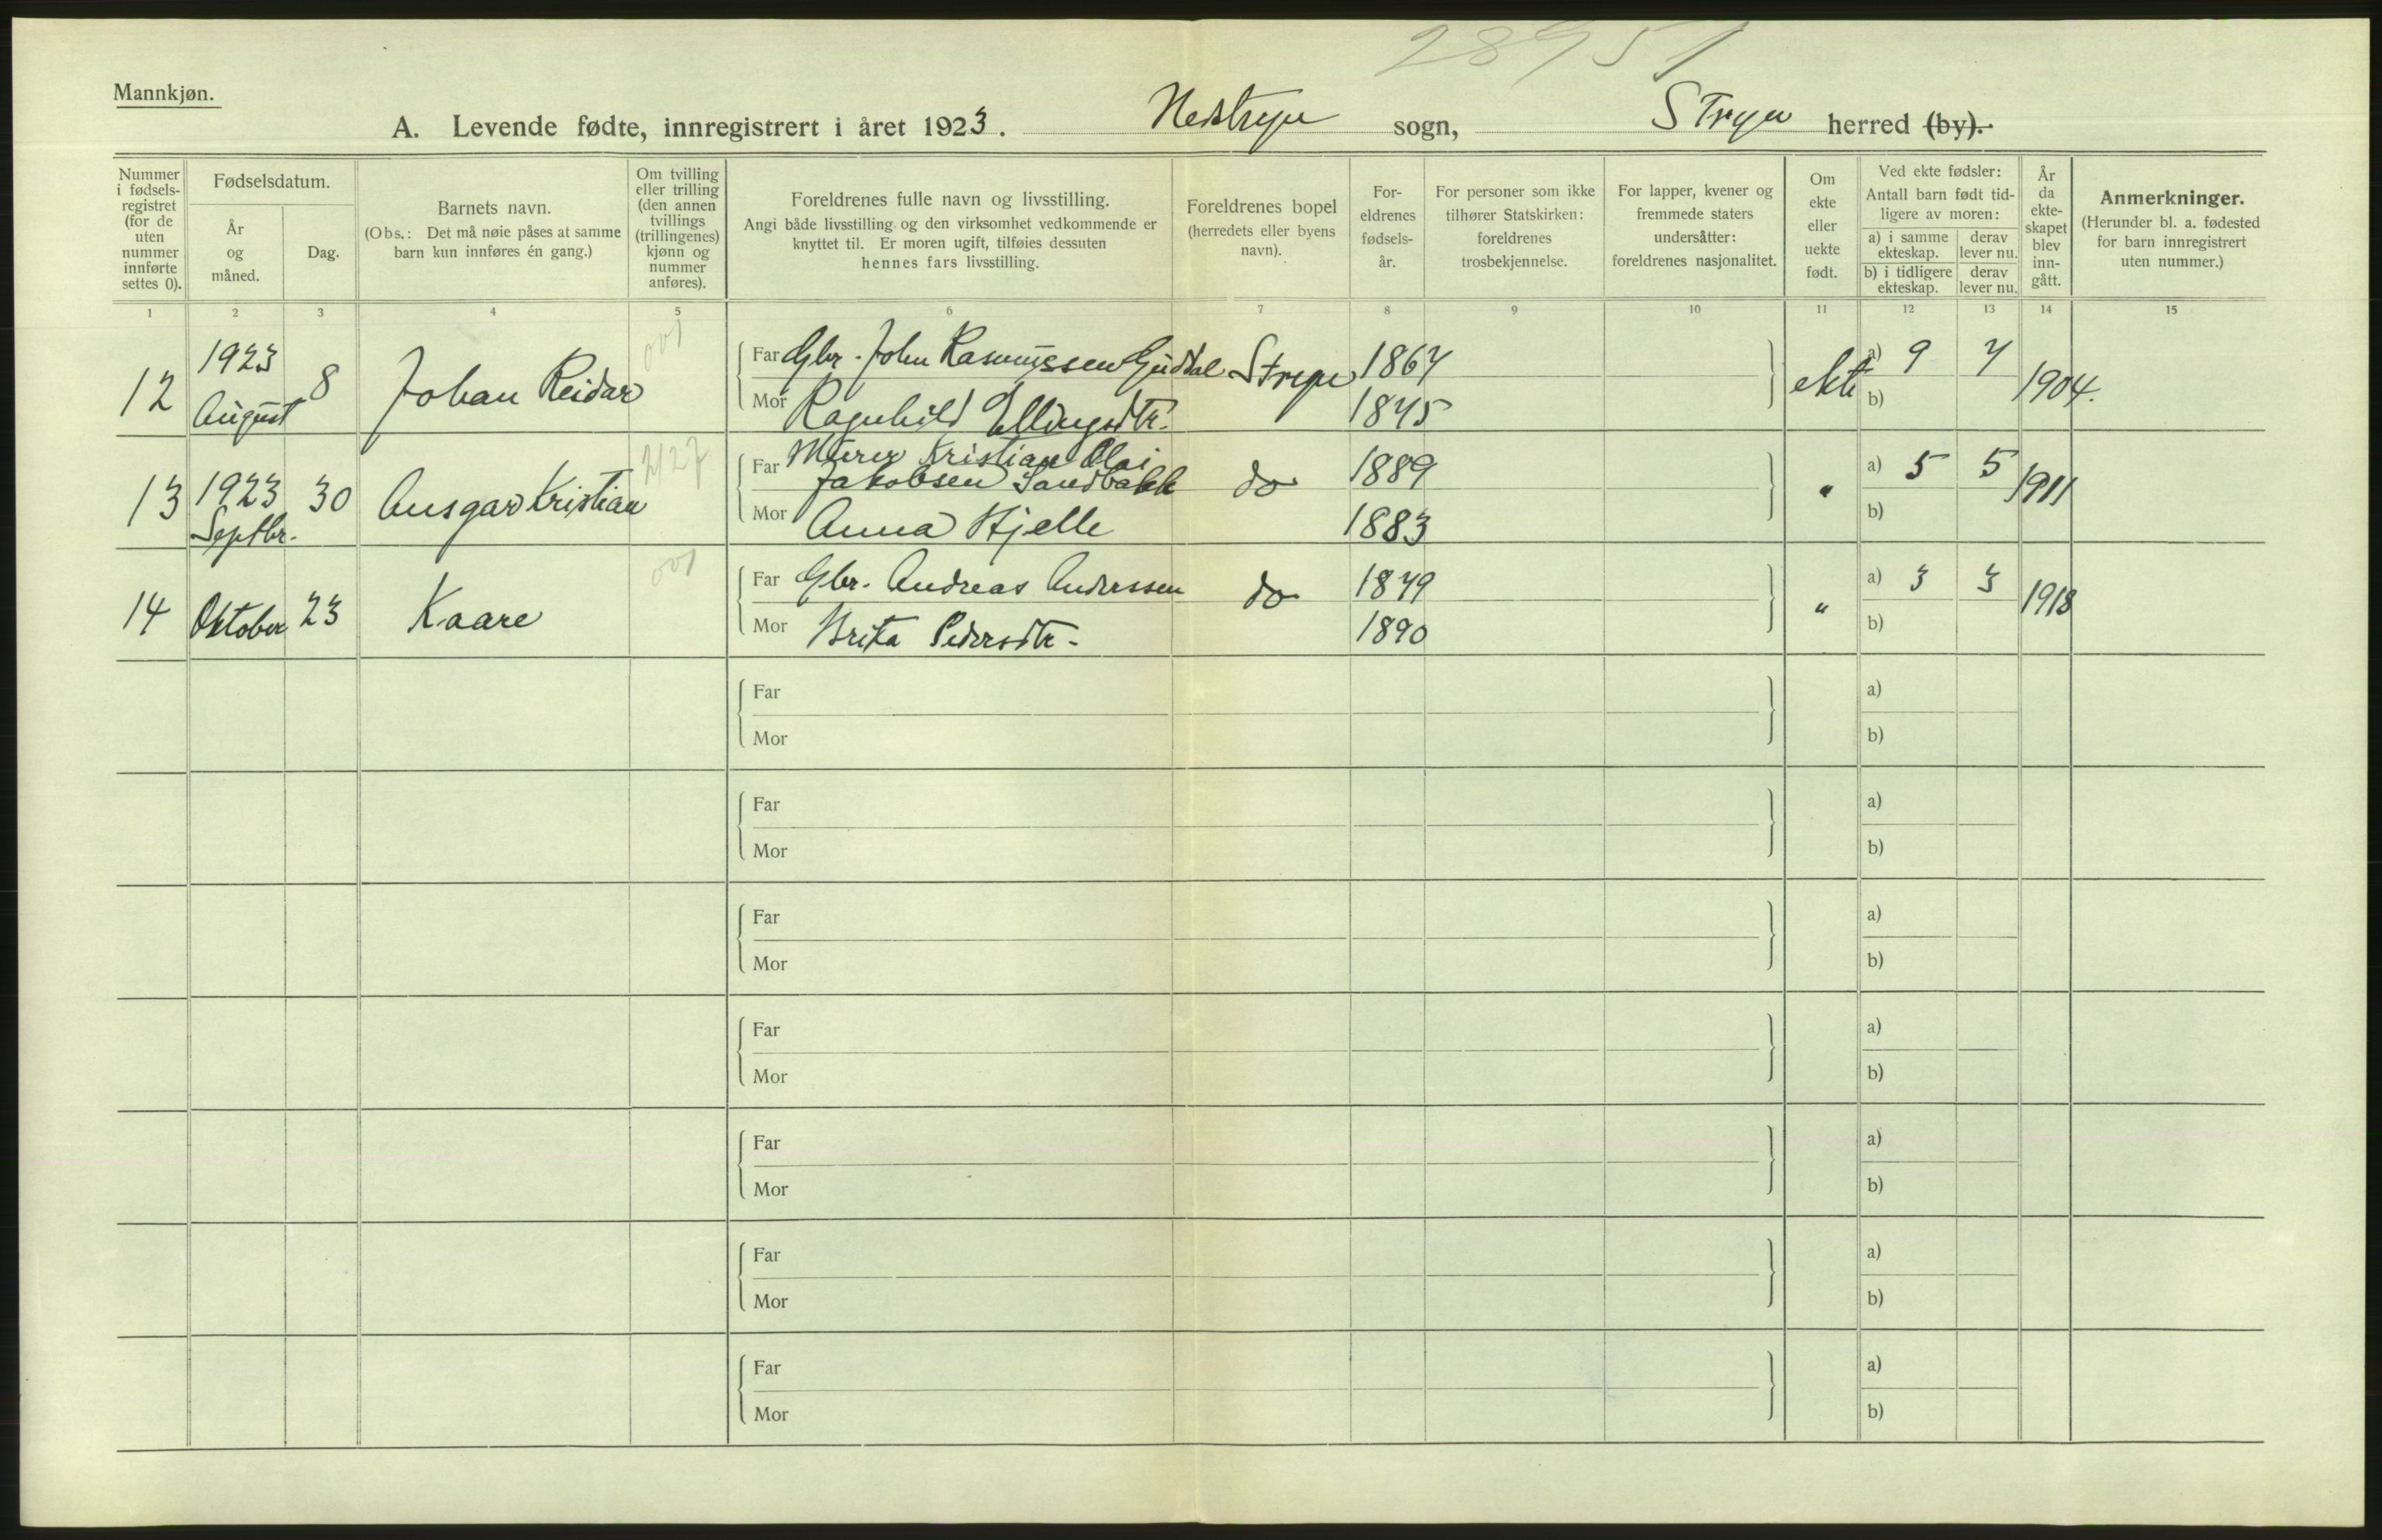 28951
Mannkjøn.
A. Levende fødte, innregistrert i året 1923. Nedstryn sogn, Stryn herred (by).
Nummer i fødsels-registret (for de uten nummer innførte settes 0).
Fødselsdatum.
År og måned.
Dag.
Barnets navn.
(Obs.: Det må nøie påses at samme barn kun innføres én gang.)
Om tvilling eller trilling (den annen tvillings (trillingenes) kjønn og nummer anføres).
Foreldrenes fulle navn og livsstilling.
Angi både livsstilling og den virksomhet vedkommende er knyttet til. Er moren ugift, tilføies dessuten hennes fars livsstilling.
Foreldrenes bopel (herredets eller byens navn).
For-eldrenes fødsels-år.
For personer som ikke tilhører Statskirken: foreldrenes trosbekjennelse.
For lapper, kvener og fremmede staters undersåtter: foreldrenes nasjonalitet.
Om ekte eller uekte født.
Ved ekte fødsler:
Antall barn født tid-ligere av moren:
a) i samme ekteskap. derav lever nu.
b) i tidligere ekteskap. derav lever nu.
År da ekte-skapet blev inn-gått.
Anmerkninger.
(Herunder bl. a. fødested for barn innregistrert uten nummer.)
1 2 3 4 5 6 7 8 9 10 11 12 13 14 15
12 1923 August 8 Johan Reidar 001
Far Gbr. John Rasmussen Gjudtal Stryn 1867 ekte a) 9 7 1904.
Mor Ragnhild Ellingsdtr. 1875 b)
13 1923 Septbr. 30 Ansgar Kristian 2127
Far Murer Kristian Olai Jakobsen Sandbakk do 1889 " a) 5 5 1911
Mor Anna Hjelle 1883 b)
14 Oktober 23 Kaare 001
Far Gbr. Andreas Anderssen do 1879 " a) 3 3 1918
Mor Brita Pedersdtr. 1890 b)
Far a)
Mor b)
Far a)
Mor b)
Far a)
Mor b)
Far a)
Mor b)
Far a)
Mor b)
Far a)
Mor b)
Far a)
Mor b)